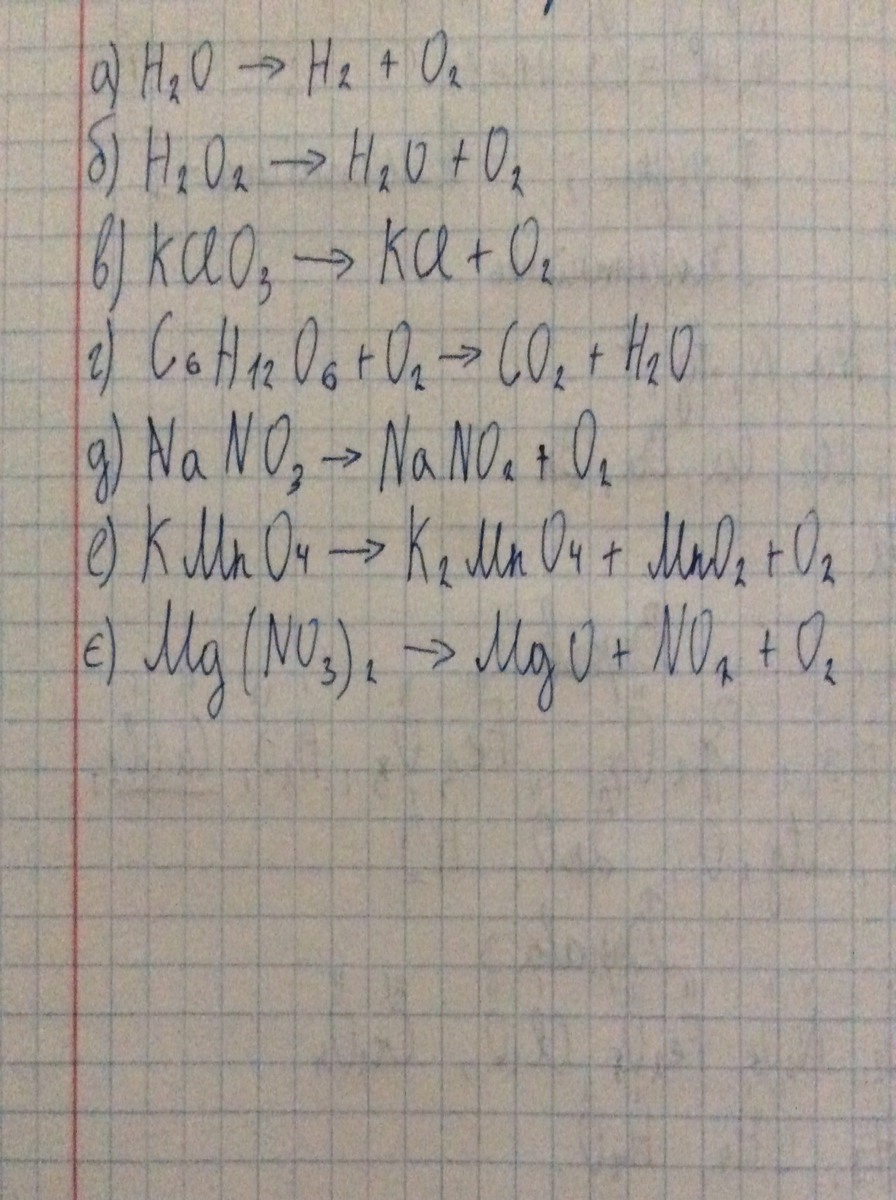 а) H₂O → H₂ + O₂
б) H₂O₂ → H₂O + O₂
в) KClO₃ → KCl + O₂
г) C₆H₁₂O₆ + O₂ → CO₂ + H₂O
д) NaNO₃ → NaNO₂ + O₂
е) KMnO₄ → K₂MnO₄ + MnO₂ + O₂
є) Mg(NO₃)₂ → MgO + NO₂ + O₂